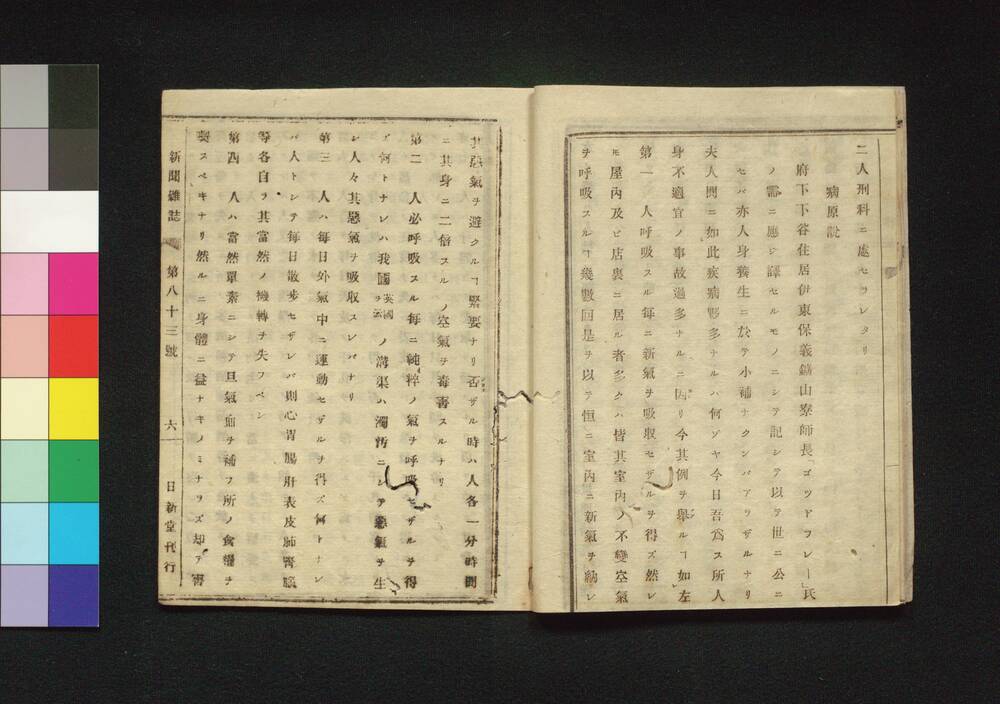 二人刑科ニ處セラレタリ
病原説
府下下谷住居伊東保義鑛山寮師長ゴッドフレー氏
ノ需ニ應ジ譯セルモノニシテ記シテ以テ世ニ公ニ
セバ亦人身養生ニ於テ小補ナクンバアラザルナリ
夫人間ニ如此疾病夥多ナルハ何ゾヤ今日吾爲ス所人
身不適宜ノ事故過多ナルニ因リ今其例ヲ擧ルヿ如左
第一 人呼吸スル毎ニ新氣ヲ吸取セザルヲ得ズ然レ
ㇳモ屋內及ビ店裏ニ居ル者多クハ皆其室內ノ不變空氣
ヲ呼吸スルヿ幾數回是ヲ以テ恒ニ室內ニ新氣ヲ納レ
其惡氣ヲ避クルヿ緊要ナリ否ザル時ハ人各一分時間
ニ其身ニ二倍スルノ空氣ヲ毒害スルナリ
第二 人必呼吸スル毎ニ純粹ノ氣ヲ呼吸セザルヲ得
ズ何トナレハ我國英國ヲ云ノ溝渠ハ濁汚ニシテ惡氣ヲ生
シ人々其惡氣ヲ吸取スレバナリ
第三 人ハ毎日外氣中ニ運動セザルヲ得ズ何トナレ
バ人トシテ毎日散歩セザレバ則心胃腸肝表皮肺腎腦
等各自ラ其當然ノ機轉ヲ失フベシ
第四 人ハ當然單素ニシテ且氣血ヲ補フ所ノ食糧ヲ
喫スベキナリ然ルニ身體ニ益ナキノミナラズ却テ害
新聞雜誌 第八十三號 六 日新堂刊行